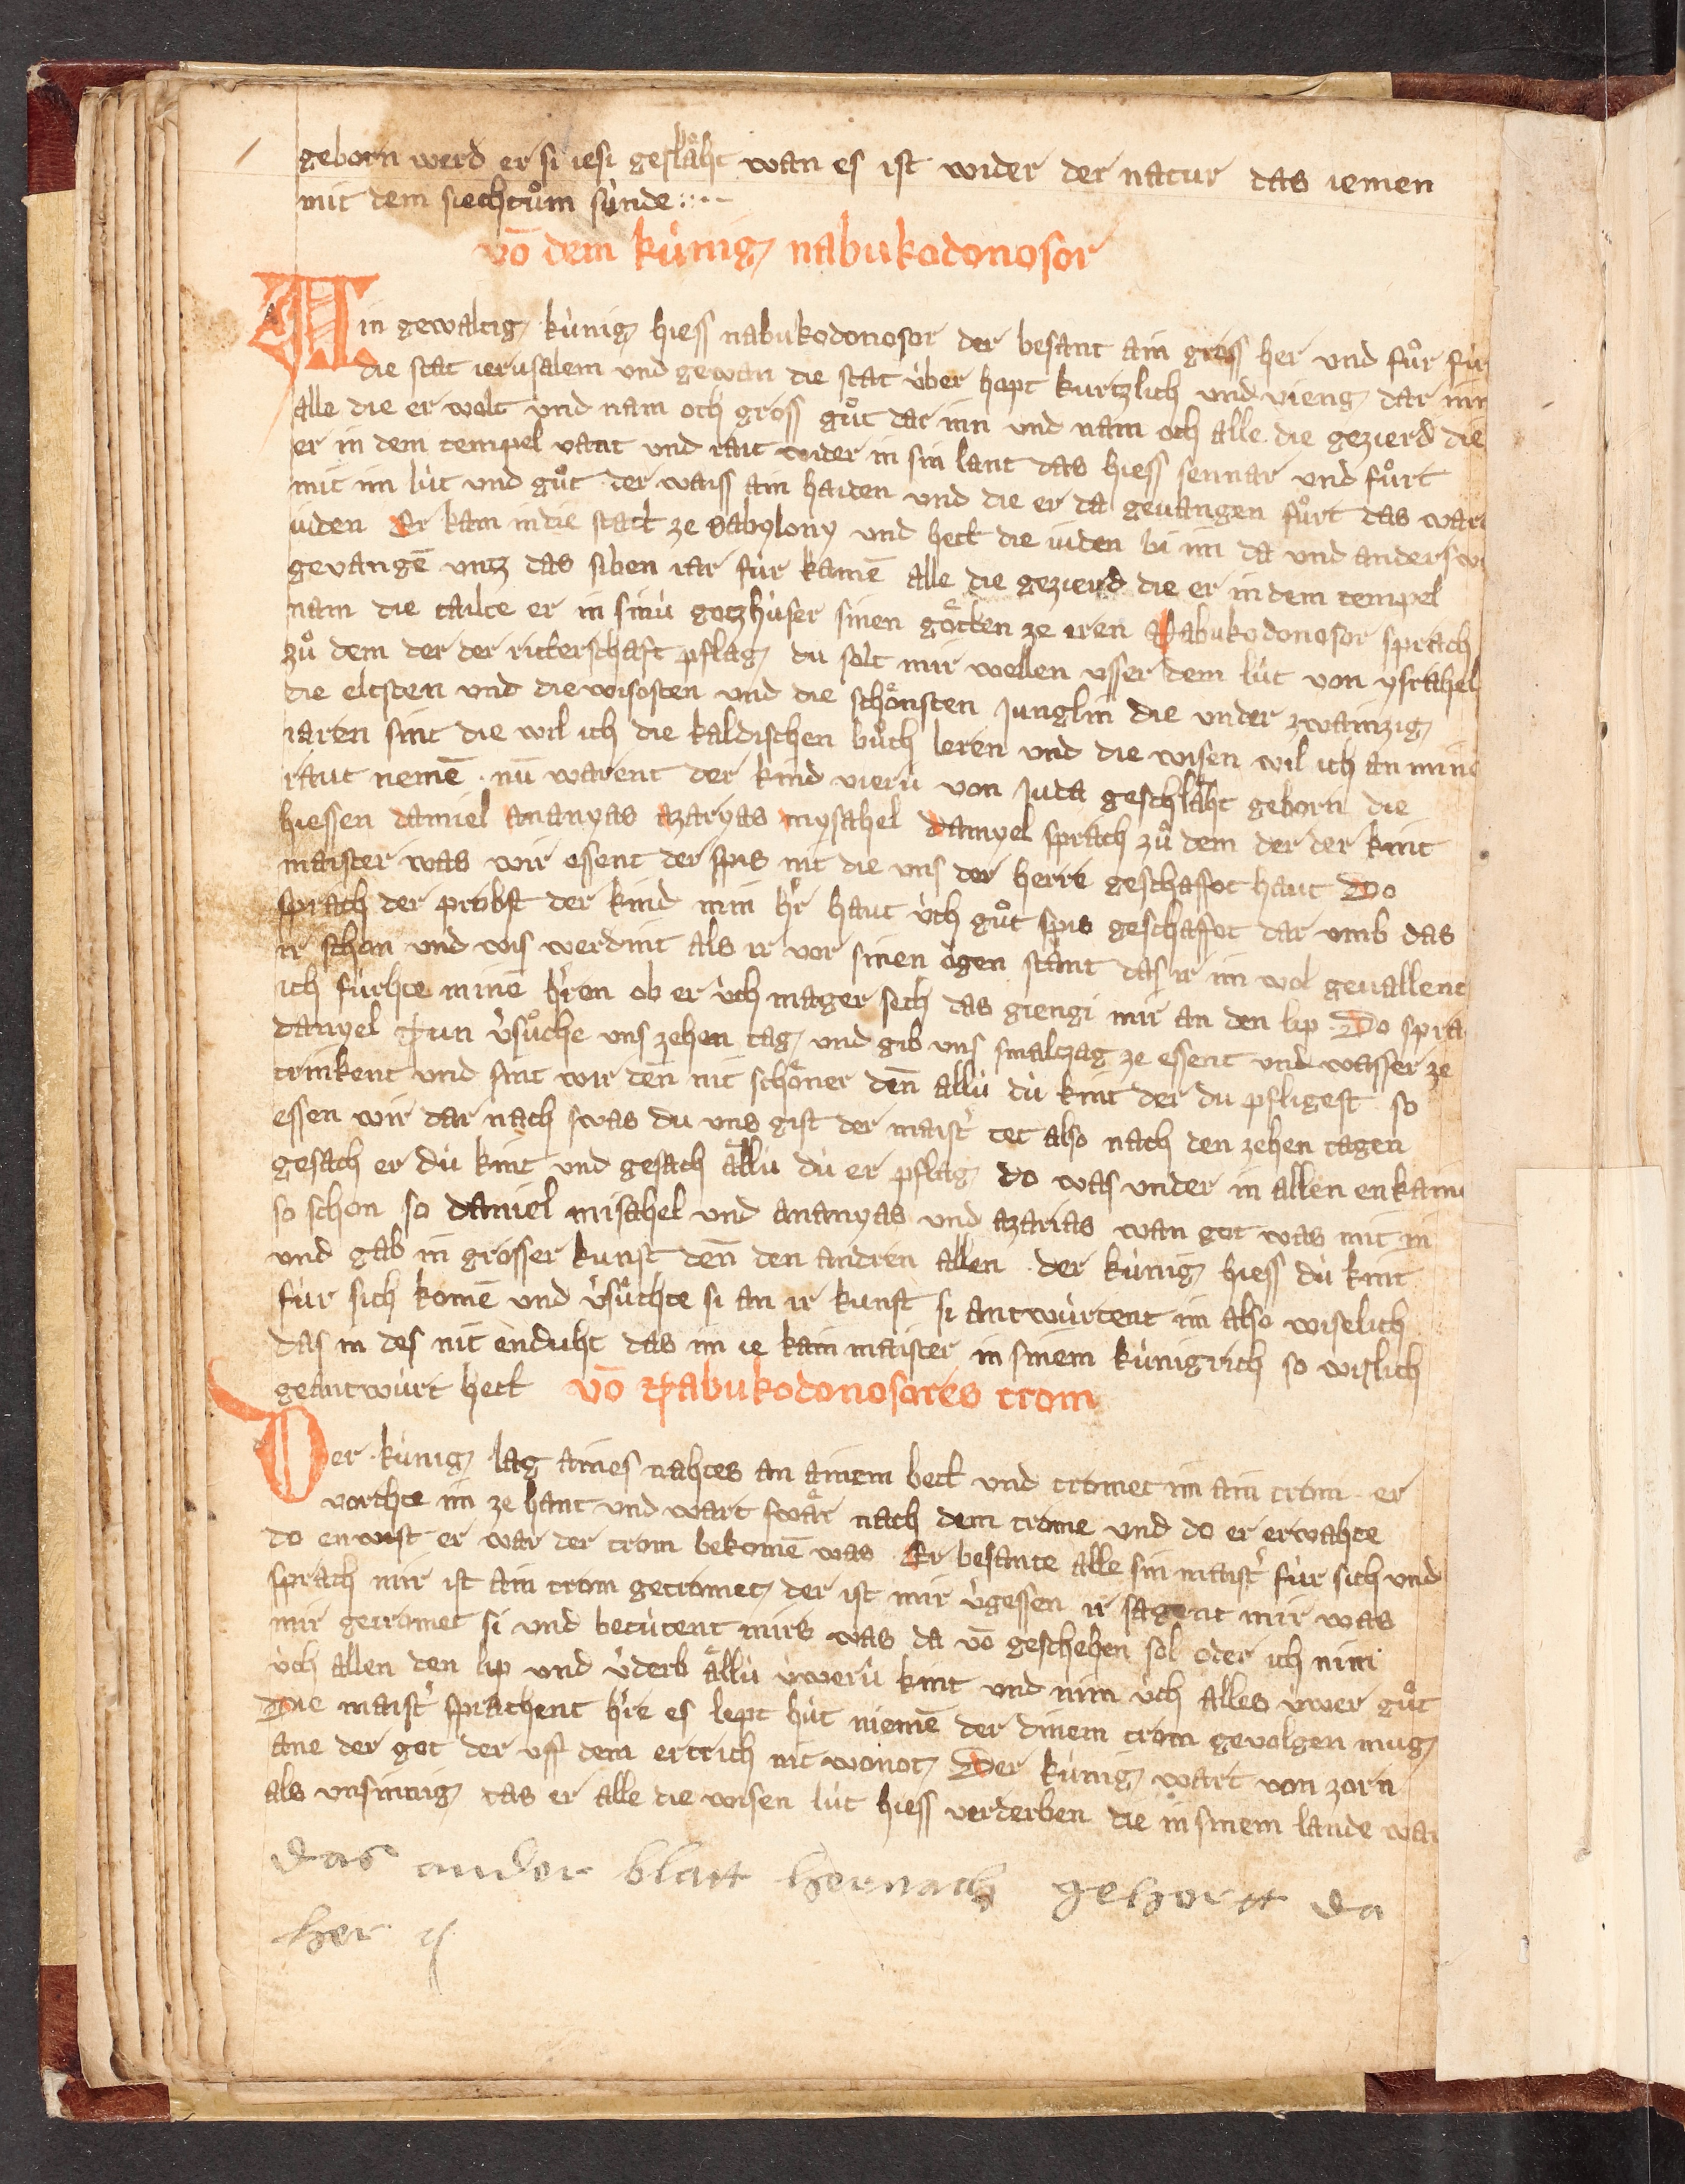 geborn werd er si iesi geslaͤht wan es ist wider der natur das iemen
mit dem siechtuͦm sùnde
vō dem kùnig nabukodonosor
Ain gewaltig kùnig hiess nabukodonosor der besant ain gross her und fuͦr fùr
die stat ierusalem und gewan die stat ùber hopt kurtzlich und vieng dar inn
alle die er wolt und nam och gross guͦt dar inn und nam och alle die gezierd die
er in dem tempel vant und rait wider in sin lant das hiess sennar und fuͦrt
mit im lùt und guͦt der waiss ain haiden und die er da gevangen fuͦrt das war
iuden Er kam in die statt ze babylony und hett die iuden bi im da und anderswa
gevangē untz das siben iar fùr kamē alle die gezierd die er in dem tempel
nam die tailte er in sinù gotzhùser sinen goͤtten ze eren Nabukodonosor sprach
zuͦ dem der der ritterschaft pflag du solt mir wellen usser dem lùt von ysrahel
die eltsten und die wisosten und die schoͤnsten Junglin die under zwainzig
iaren sint die wil ich die kaldischen buͦch leren und die wisen wil ich an mine
raut nemē nū warent der kind vierù von Juda geschlaͤht geborn die
hiessen daniel ananyas azaryas mysahel Danyel sprach zuͦ dem der der kint
maister was wir essent der spis nit die uns der herre geschaffot haut Do
sprach der probst der kind min hr̄ haut ùch guͦt spis geschaffot dar umb das
ir schon und wis werdint als ir vor sinen ogen stant das ir im wol gevallent
ich fùrhte minē hr̄en ob er ùch mager sech das giengi mir an den lip Do spra
danyel Nun v̓suͦche uns zehen tag und gib uns smaltzag ze essent und wasser ze
trinkent und sint wir denn nit schoͤner denn allù dù kint der du pfligest so
essen wir dar nach swas du uns gist der maist̓ tet also nach den zehen tagen
gesach er dù kint und gesach aͤllù dù er pflag do was under in allen enkaini
so schon so daniel misahel und ananyas und azarias wan got was mit in
und gab in grosser kunst denn den andren allen der kùnig hiess dù kint
fùr sich komē und v̓suͦchte si an ir kunst si antwùrtent im also wiselich
das in des nit enduht das im ie kain maister in sinem kùnigrich so wislich
geantwùrt hett vō Nabukodonosores trom
Der kùnig lag aines nahtes an ainem bett und tromet im ain trom er
vorchte im ze hant und wart swaͤr nach dem trome und do er erwahte
do enwist er war der trom bekomē was Er besante alle sin maist̓ fùr sich und
sprach mir ist ain trom getromet der ist mir v̓gessen ir sagent mir was
mir getromet si und betùtent mirs was da vō geschehen sol oder ich nim
ùch allen den lip und v̓derb aͤllù ùwerù kint und nim ùch alles ùwer guͦt
Die maist̓ sprachent hr̄e es lept hùt niemē der dinem trom gevolgen mug
ane der got der uff dem ertrich nit wonot Der kùnig wart von zorn
als unsinnig das er alle die wisen lùt hiess verderben die in sinem lande war
das ander blatt hernach gehortt da
her